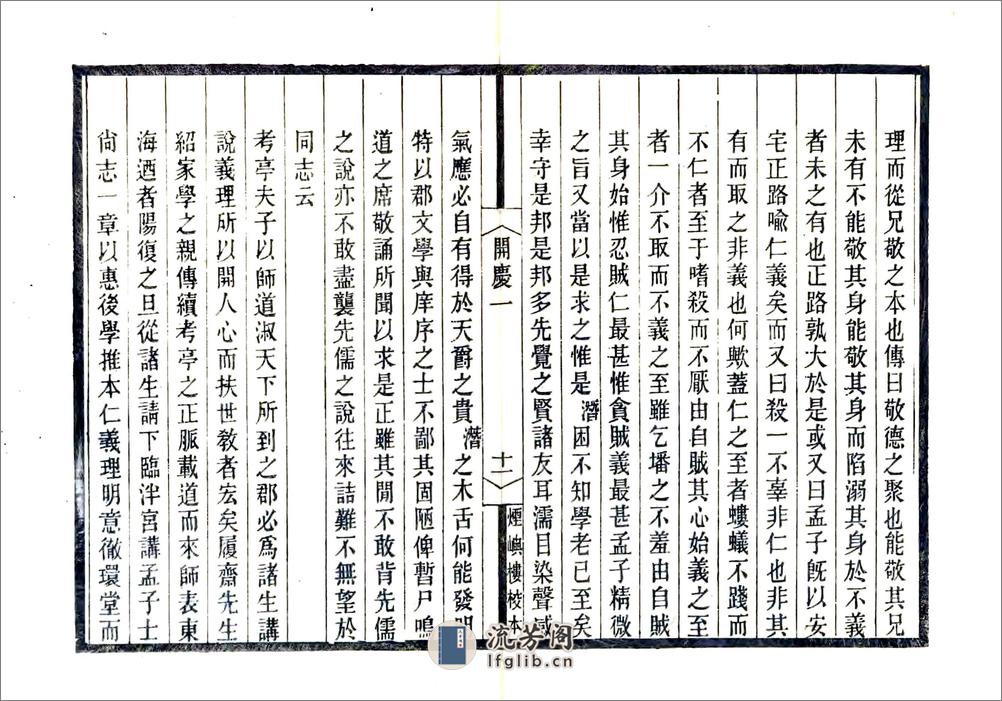 理而從兄敬之本也傳曰敬德之聚也能敬其兄
未有不能敬其身能敬其身而陷溺其身於不義
者未之有也正路孰大於是或又曰孟子旣以安
宅正路喩仁義矣而又曰殺一不辜非仁也非其
有而取之非義也何歟蓋仁之至者螻蟻不踐而
不仁者至于嗜殺而不厭由自賊其心始義之至
者一介不取而不義之至雖乞墦之不羞由自賊
其身始惟忍賊仁最甚惟貪賊義最甚孟子精微
之旨又當以是求之惟是潛困不知學老已至矣
幸守是邦是邦多先覺之賢諸友耳濡目染聲感
開慶一
十一
煙嶼樓校本
氣應必自有得於天爵之貴潛之木舌何能發明
特以郡文學與庠序之士不鄙其固陋俾暫尸鳴
道之席敬誦所聞以求是正雖其閒不敢背先儒
之說亦不敢盡襲先儒之說往來詰難不無望於
同志云
考亭夫子以師道淑天下所到之郡必爲諸生講
說義理所以開人心而扶世敎者宏矣履齋先生
紹家學之親傳續考亭之正脈載道而來師表東
海迺者陽復之旦從諸生請下臨泮宮講孟子士
尙志一章以惠後學推本仁義理明意徹環堂而
流芳阁
lfglib.cn